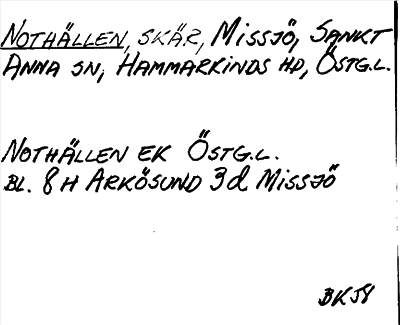 NOTHÄLLEN, SKÄR, MISSJÖ, SANKT
ANNA SN, HAMMARKINDS HD, ÖSTG.L.
NOTHÄLLEN EK ÖSTG.L.
BL. 8H ARKÖSUND 3d MISSJÖ
BKJ8